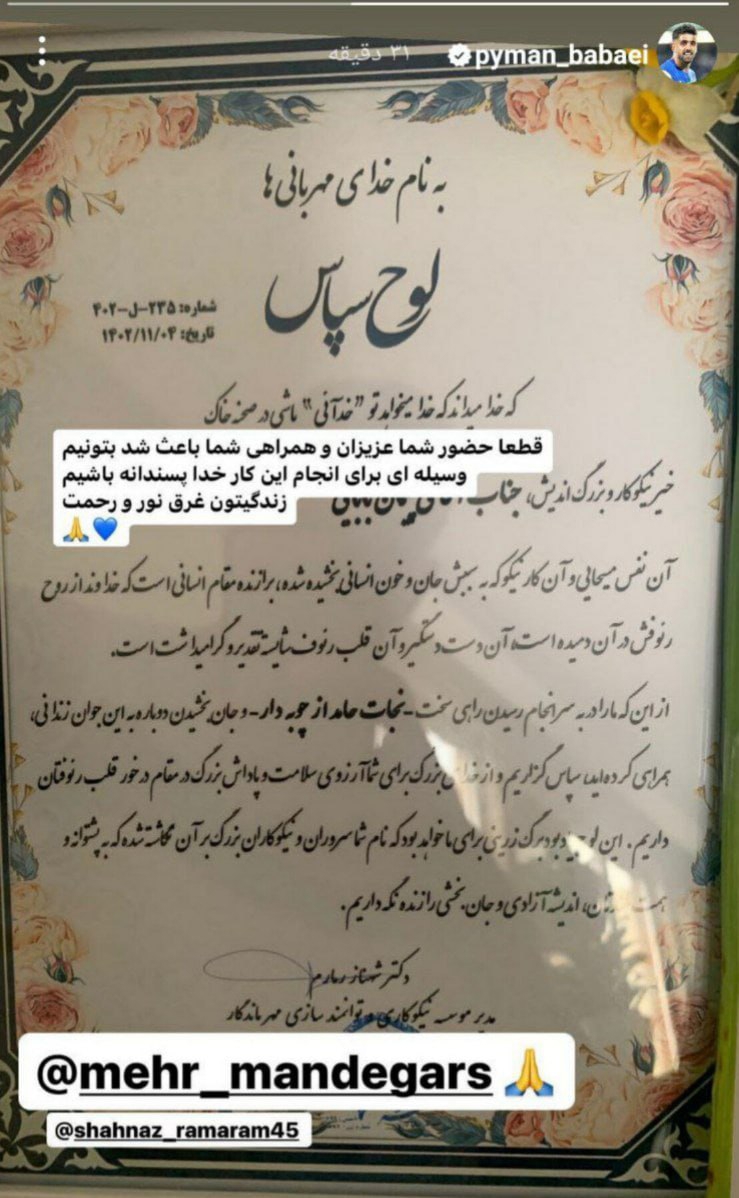 pyman_babaei ۳۱ دقیقه
به نام خدای مهربانی ها
لوح سپاس
شماره: ۲۳۵-ل-۴۰۲
تاریخ: ۱۴۰۲/۱۱/۰۴
که خدا میداند که خدا میخواهد تو "خدآفی" باشی در صحنه خاک
قطعا حضور شما عزیزان و همراهی شما باعث شد بتونیم
وسیله ای برای انجام این کار خدا پسندانه باشیم
زندگیتون غرق نور و رحمت
🙏💙
خیر نیکوکار و بزرگ اندیش، جناب
آن نفس مسیحایی و آن کار نیکو که به سببش جان و خون انسانی بخشیده شده، برازنده مقام انسانی است که خداوند از روح
رئوفش در آن دمیده است، آن دست دستگیر و آن قلب رئوف شایسته تقدیر و گرامیداشت است.
از این که ما را در به سرانجام رسیدن راهی سخت -نجات حامد از چوبه دار- و جان بخشیدن دوباره به این جوان زندانی،
همراهی کرده‌اید، سپاس گزاریم و از خدای بزرگ برای شما آرزوی سلامت و پاداش بزرگ در مقام در خور قلب رئوفتان
داریم. این لوح یادبود برگ زرینی برای ما خواهد بود که نام شما سروران و نیکوکاران بزرگ بر آن نگاشته شده که به پشتوانه و
همت اندیشه آزادی و جان بخشی را زنده نگه داریم.
دکتر شهناز رمارم
مدیر موسسه نیکوکاری و توانمند سازی مهر ماندگار
@mehr_mandegars 🙏
@shahnaz_ramaram45